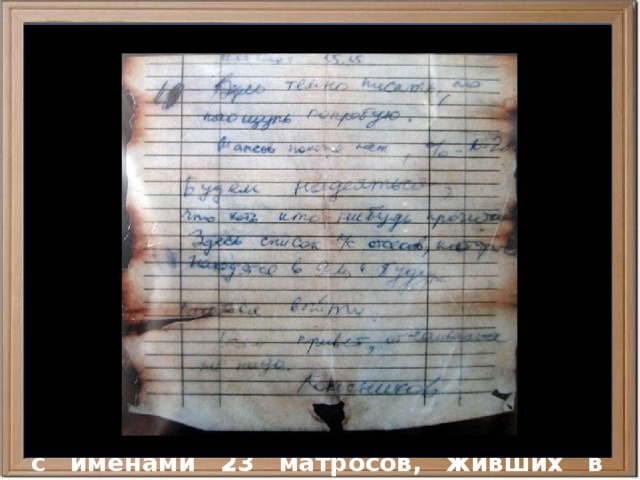 15.15
Здесь темно писать, но
наощупь попробую.
Шансов похоже нет, % 10-20
Будем надеяться,
что хоть кто нибудь прочитает
Здесь список л/с отсеков, которые
находятся в 9-м и будут
выйти.
привет, отчаиваться
не надо.
Колесников
с именами 23 матросов, живших в